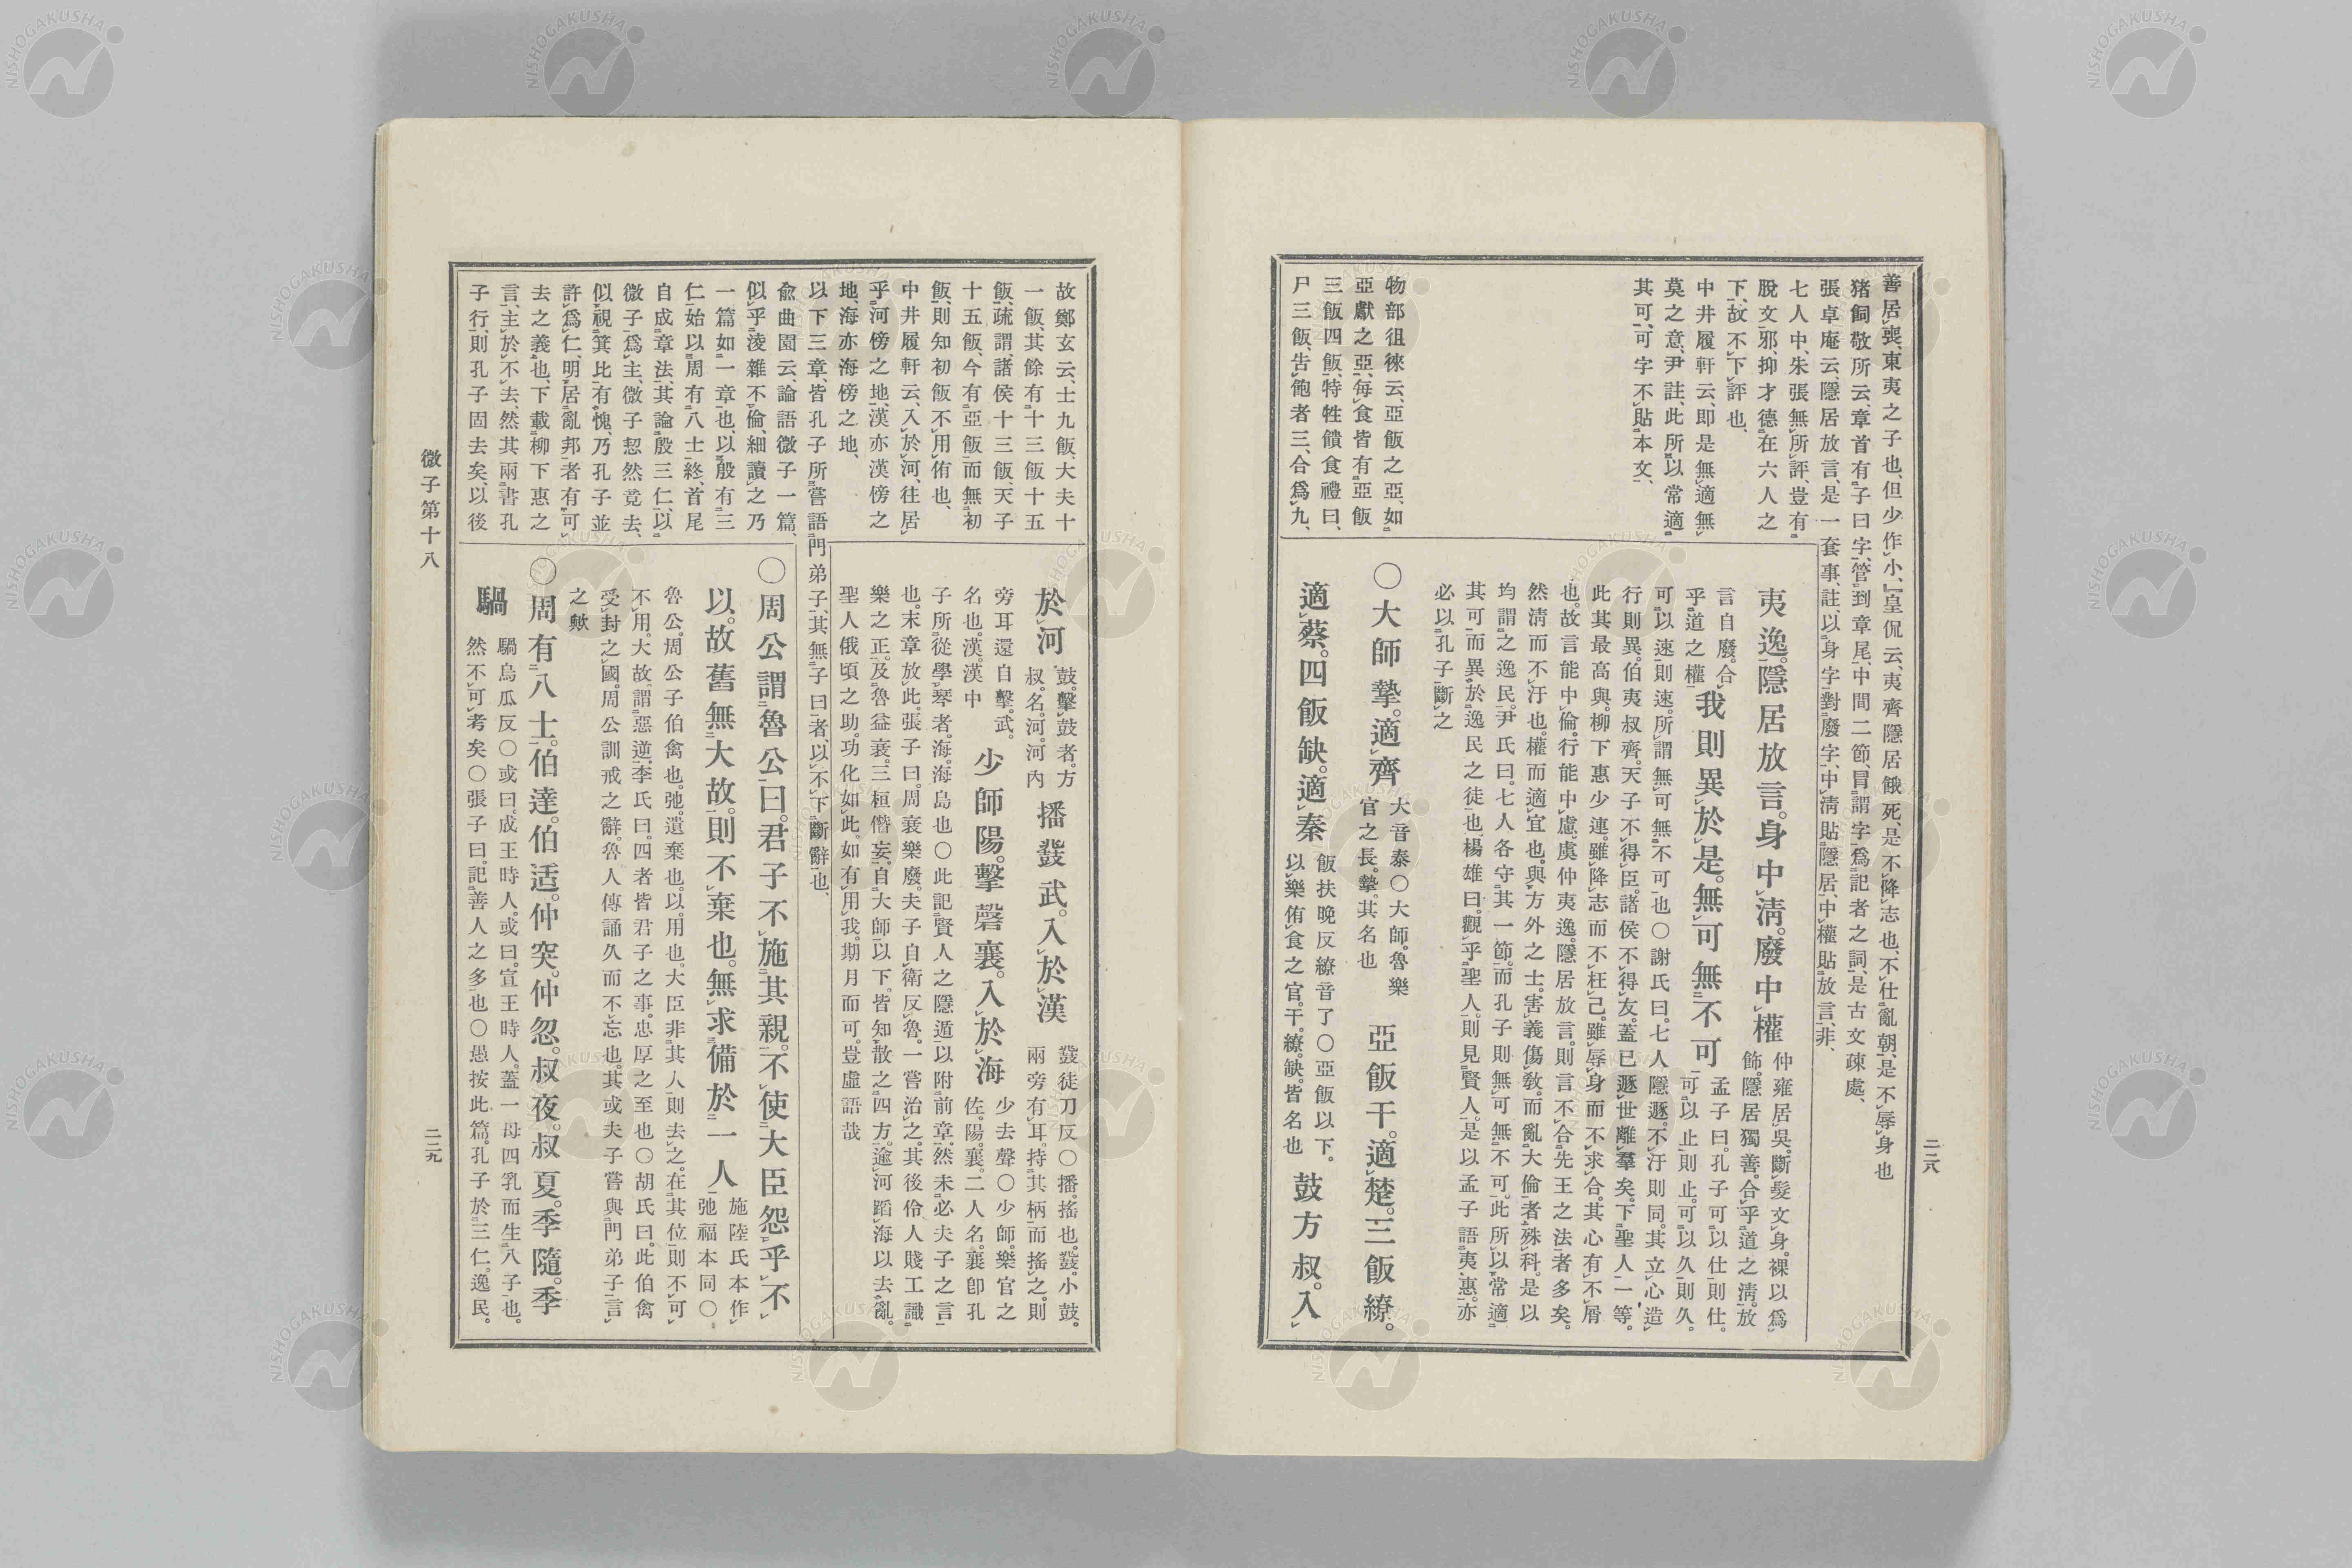 二二八
善居喪、東夷之子也、但少作小、」皇侃云、夷齊隱居餓死、是不降志也、不仕亂朝、是不辱身也
猪飼敬所云、章首有子曰字、管到章尾、中間二節、冒謂字、爲記者之詞、是古文疎處、
張卓庵云、隱居放言、是一套事、註、以身字對廢字、中淸貼隱居、中權貼放言、非、
七人中、朱張無所評、豈有
脫文邪、抑才德在六人之
下、故不下評也、
中井履軒云、即是無適無
莫之意、尹註、此所以常適
其可、可字不貼本文、
夷逸。隱居放言。身中淸。廢中權
仲雍居吳。斷髮文身。裸以爲
飾。隱居獨善。合乎道之淸。放
言自廢。合
乎道之權
我則異於是。無可無不可
孟子曰。孔子可以仕則仕。
可以止則止。可以久則久。
可以速則速。所謂無可無不可也○謝氏曰。七人隱遯。不汙則同。其立心造
行則異。伯夷叔齊。天子不得臣。諸侯不得友。蓋已遯世離羣矣。下聖人一等。
此其最高與。柳下惠少連。雖降志而不枉己。雖辱身而不求合。其心有不屑
也。故言能中倫。行能中慮。虞仲夷逸。隱居放言。則言不合先王之法者多矣。
然淸而不汙也。權而適宜也。與方外之士。害義傷敎。而亂大倫者殊科。是以
均謂之逸民。尹氏曰。七人各守其一節。而孔子則無可無不可。此所以常適
其可。而異於逸民之徒也。楊雄曰。觀乎聖人。則見賢人。是以孟子語夷惠。亦
必以孔子斷之
物部徂徠云、亞飯之亞、如
亞獻之亞、每食皆有亞飯
三飯四飯、特牲饋食禮曰、
尸三飯、告飽者三、合爲九、
○大師摯。適齊
大音泰○大師。魯樂
官之長。摯。其名也
亞飯干。適楚。三飯繚。
適蔡。四飯缺。適秦
飯扶晚反繚音了○亞飯以下。
以樂侑食之官。干。繚。缺。皆名也
鼓方叔。入
故鄭玄云、士九飯、大夫十
一飯、其餘有十三飯十五
飯、疏謂、諸侯十三飯、天子
十五飯、今有亞飯而無初
飯、則知初飯不用侑也、
中井履軒云、入於河、往居
乎河傍之地、漢亦漢傍之
地、海亦海傍之地、
於河
鼓。擊鼓者。方
叔。名。河。河內
播鼗武。入於漢
鼗徒刀反○播。搖也。鼗。小鼓。
兩旁有耳。持其柄而搖之。則
旁耳還自擊。武。
名也。漢。漢中
少師陽。擊磬襄。入於海
少去聲○少師。樂官之
佐。陽。襄。二人名。襄卽孔
子所從學琴者。海。海島也○此記賢人之隱遁。以附前章。然未必夫子之言
也。末章放此。張子曰。周衰樂廢。夫子自衛反魯。一嘗治之。其後伶人賤工識
樂之正。及魯益衰。三桓僭妄。自大師以下。皆知散之四方。逾河蹈海以去亂。
聖人俄頃之助。功化如此。如有用我。期月而可。豈虛語哉
以下三章、皆孔子所嘗語門弟子、其無子曰者、以不下斷辭也、
兪曲園云、論語微子一篇、
似乎淩雜不倫、細讀之乃
一篇如一章也、以殷有三
仁始以周有八士終、首尾
自成章法、其論殷三仁、以
微子爲主、微子恝然竟去、
似視箕比有愧、乃孔子並
許爲仁、明居亂邦者有可
去之義也、下載柳下惠之
言、主於不去、然其兩書孔
子行、則孔子固去矣、以後
○周公謂魯公曰。君子不施其親。不使大臣怨乎不
以。故舊無大故。則不棄也。無求備於一人
施陸氏本作
弛福本同○
魯公。周公子伯禽也。弛。遺棄也。以。用也。大臣非其人則去之。在其位則不可
不用。大故。謂惡逆。李氏曰。四者皆君子之事。忠厚之至也○胡氏曰。此伯禽
受封之國。周公訓戒之辭。魯人傳誦久而不忘也。其或夫子嘗與門弟子言
之歟
○周有八士。伯達。伯适。仲突。仲忽。叔夜。叔夏。季隨。季
騧
騧烏瓜反○或曰。成王時人。或曰。宣王時人。蓋一母四乳而生八子也。
然不可考矣○張子曰。記善人之多也○愚按此篇。孔子於三仁。逸民。
微子第十八
二二九